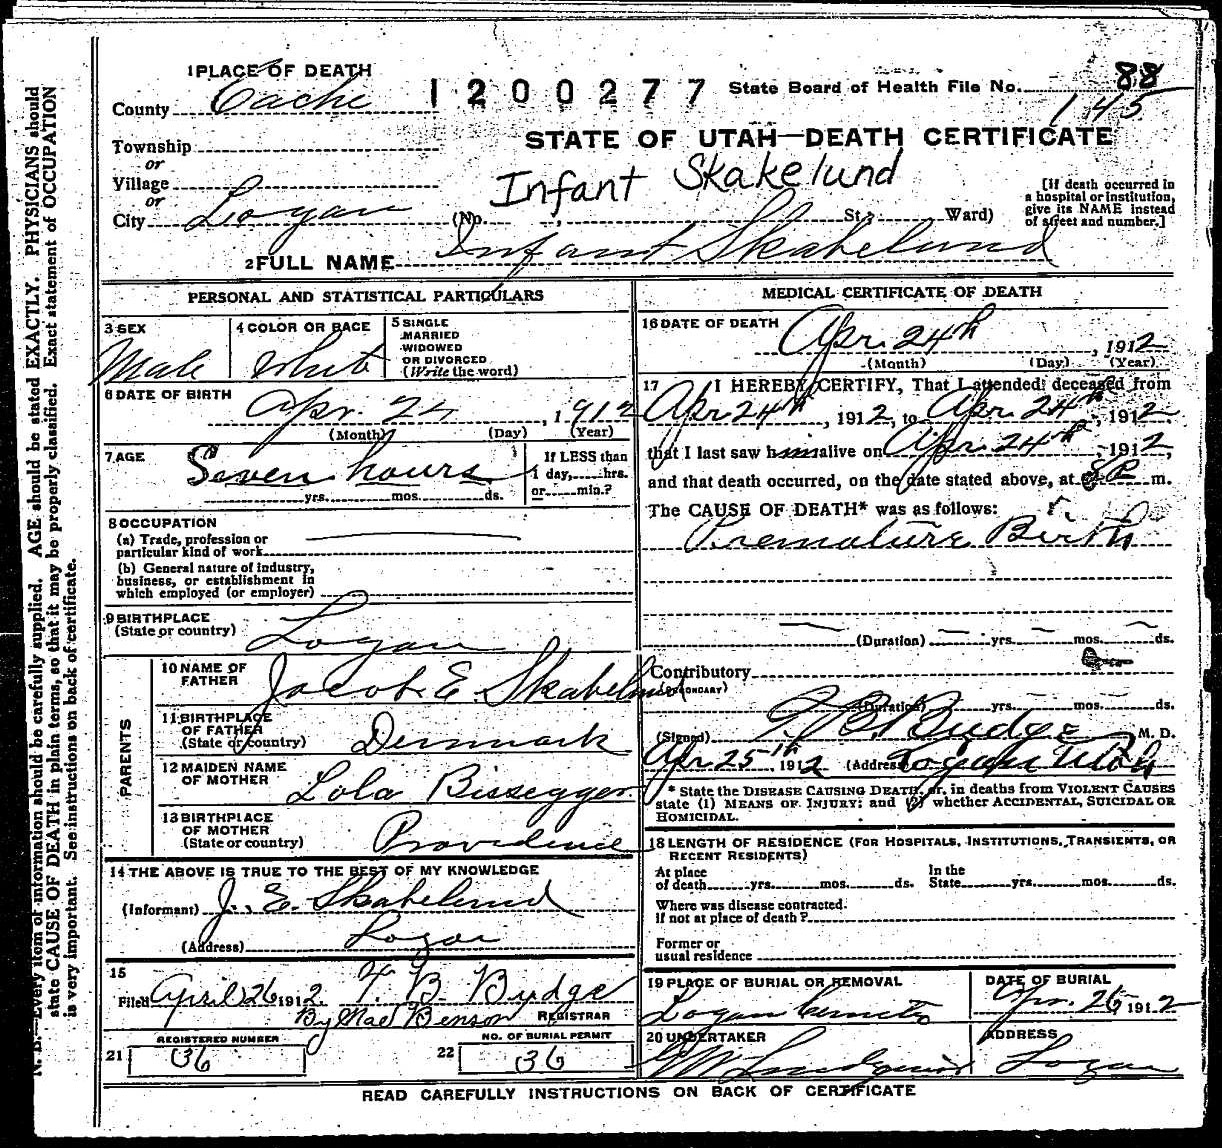 1 PLACE OF DEATH
County Cache
1200277
State Board of Health File No. 88
145
Township
or
Village
or
City Logan
STATE OF UTAH—DEATH CERTIFICATE
Infant Skakelund
(No. , St.; Ward)
[If death occurred in
a hospital or institution,
give its NAME instead
of street and number.]
2 FULL NAME Infant Skabelund
PERSONAL AND STATISTICAL PARTICULARS
3 SEX
Male
4 COLOR OR RACE
White
5 SINGLE
MARRIED
WIDOWED
OR DIVORCED
(Write the word)
6 DATE OF BIRTH
Apr. 24, 1912
(Month) (Day) (Year)
7 AGE
Seven hours
yrs. mos. ds.
If LESS than
1 day, hrs.
or min.?
8 OCCUPATION
(a) Trade, profession or
particular kind of work
(b) General nature of industry,
business, or establishment in
which employed (or employer)
9 BIRTHPLACE
(State or country) Logan
PARENTS
10 NAME OF
FATHER Jacob E. Skabelund
11 BIRTHPLACE
OF FATHER
(State or country) Denmark
12 MAIDEN NAME
OF MOTHER Lola Bissegger
13 BIRTHPLACE
OF MOTHER
(State or country) Providence
14 THE ABOVE IS TRUE TO THE BEST OF MY KNOWLEDGE
(Informant) J. E. Skabelund
(Address) Logan
15
Filed April 26 1912. T. B. Budge
By Mae Benson REGISTRAR
21 REGISTERED NUMBER
36
22 NO. OF BURIAL PERMIT
36
MEDICAL CERTIFICATE OF DEATH
16 DATE OF DEATH
Apr. 24th, 1912
(Month) (Day) (Year)
17 I HEREBY CERTIFY, That I attended deceased from
Apr 24th, 1912, to Apr. 24th, 1912,
that I last saw him alive on Apr. 24th, 1912,
and that death occurred, on the date stated above, at 8 P m.
The CAUSE OF DEATH* was as follows:
Premature Birth
(Duration) yrs. mos. ds.
Contributory
(SECONDARY)
(Duration) yrs. mos. ds.
(Signed) T. B. Budge M. D.
Apr 25th 1912 (Address) Logan Utah
* State the DISEASE CAUSING DEATH, or, in deaths from VIOLENT CAUSES
state (1) MEANS OF INJURY; and (2) whether ACCIDENTAL, SUICIDAL OR
HOMICIDAL.
18 LENGTH OF RESIDENCE (FOR HOSPITALS, INSTITUTIONS, TRANSIENTS, OR
RECENT RESIDENTS)
At place
of death yrs. mos. ds.
In the
State yrs. mos. ds.
Where was disease contracted.
if not at place of death?
Former or
usual residence
19 PLACE OF BURIAL OR REMOVAL
Logan
DATE OF BURIAL
Apr. 26 1912
20 UNDERTAKER
ADDRESS
Logan
READ CAREFULLY INSTRUCTIONS ON BACK OF CERTIFICATE
N. B.—Every item of information should be carefully supplied. AGE should be stated EXACTLY. PHYSICIANS should
state CAUSE OF DEATH in plain terms, so that it may be properly classified. Exact statement of OCCUPATION
is very important. See instructions on back of certificate.